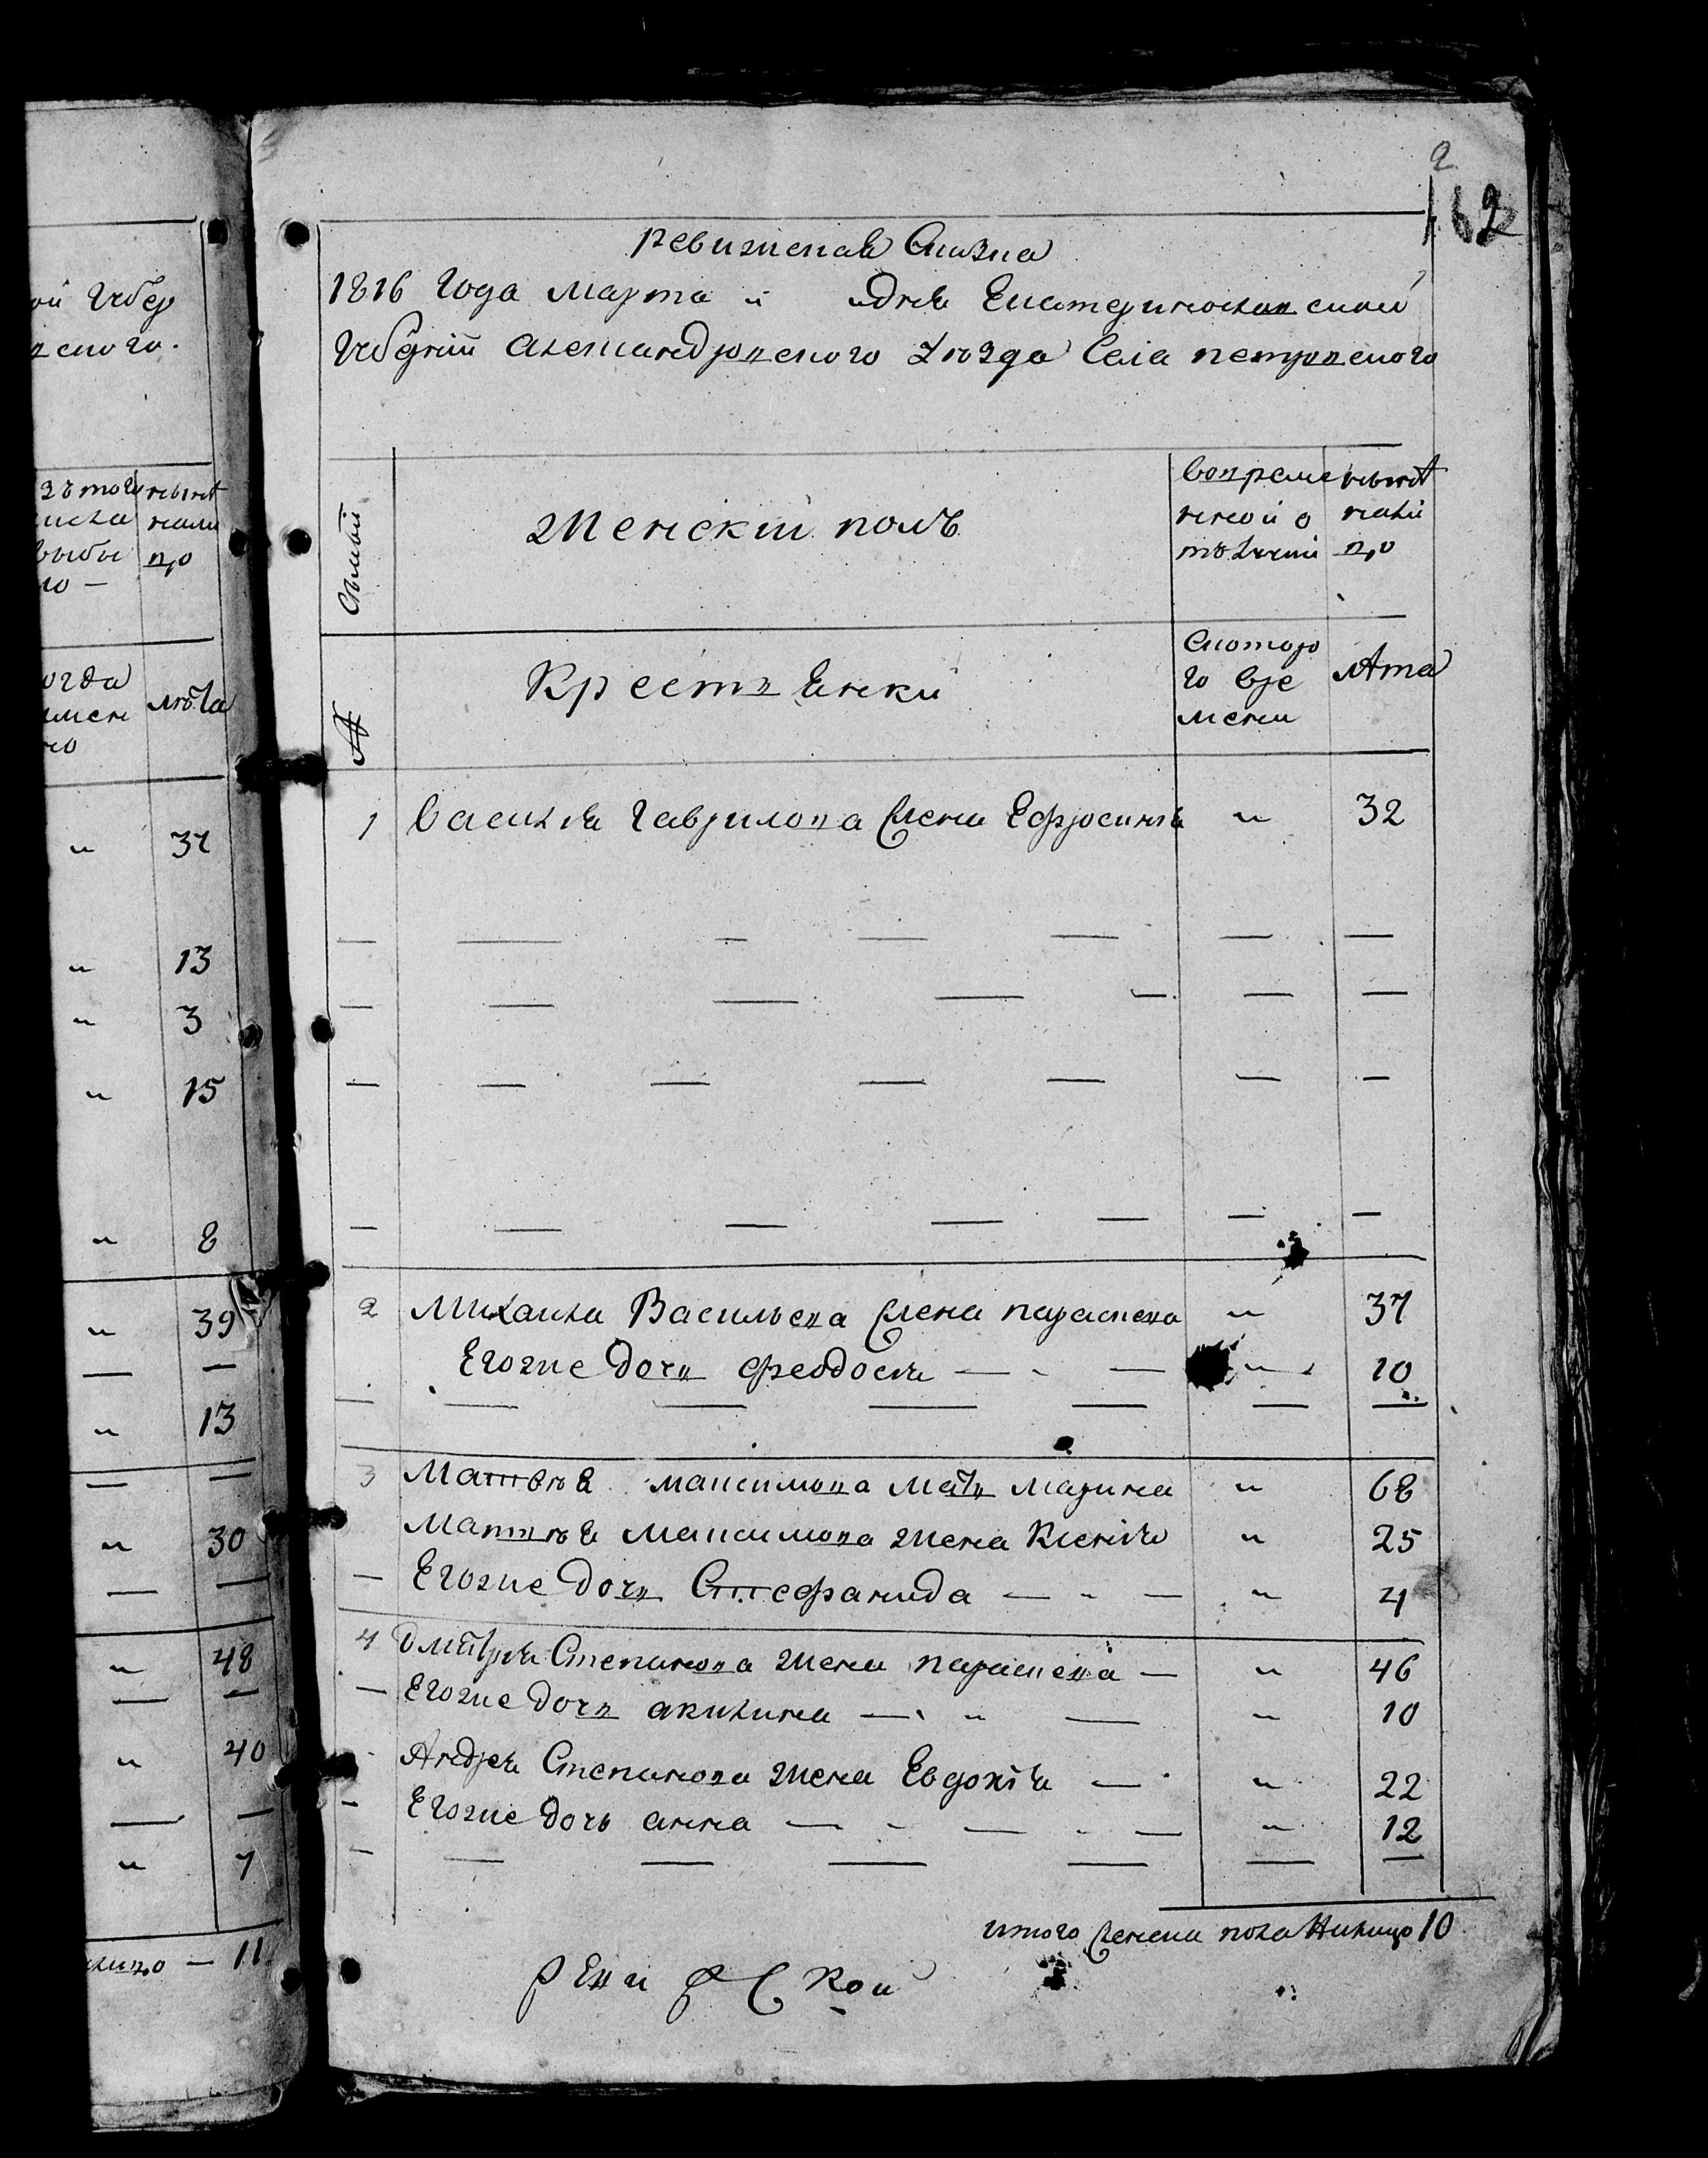 ой губер
ского.
изъ того
числа
выбы
ло —
нынѣ
нали
цо
когда
имен
но
лѣта
„ 37
„ 13
„ 3
„ 15
„ 8
„ 39
— —
„ 13
— —
„ 30
— —
„ 48
— —
„ 40
— —
„ 7
лицо — 11
2
162
ревизская Сказка
1816 года марта „ дня Екатеринославской
губерніи Александровского уѣзда Села петровского
Семьи
Женскій полъ
вовреме
нной о
тлучки
нынѣ
нали
цо
№
Крестьянки
Скоторо
го вре
мени
лѣта
1 Василья гаврилова жена Ефросинья „ 32
— — — — — — —
— — — — — — —
— — — — — — —
— — — — — — —
2 Михаила Васильева жена параскева „ 37
Егоже дочь феодосья — „ — „ 10
— — — — — — —
3 Матвея максимова мать марина „ 68
Матвея максимова жена Ксенья „ 25
— Егоже дочь Стефанида — „ — „ 4
4 Дмитрия Степанова жена параскева — „ 46
— Егоже дочь акилина — „ — „ 10
Андрея Степанова жена Евдокія — „ 22
— Егоже дочь анна — „ — „ — „ 12
— — — — — — —
итого женска пола налицо 10